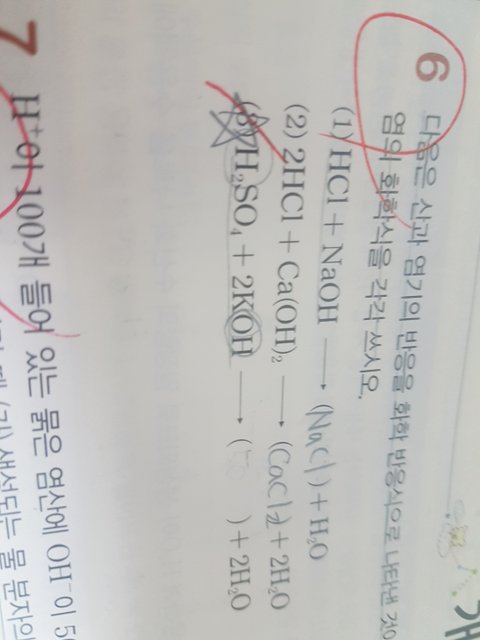 6 다음은 산과 염기의 반응을 화학 반응식으로 나타낸 것이
염의 화학식을 각각 쓰시오.
(1) HCl + NaOH ⟶ (NaCl) + H₂O
(2) 2HCl + Ca(OH)₂ ⟶ (CaCl₂) + 2H₂O
(3) H₂SO₄ + 2KOH ⟶ ( ) + 2H₂O
7 H⁺이 100개 들어 있는 묽은 염산에 OH⁻이 5
생성되는 물 분자의